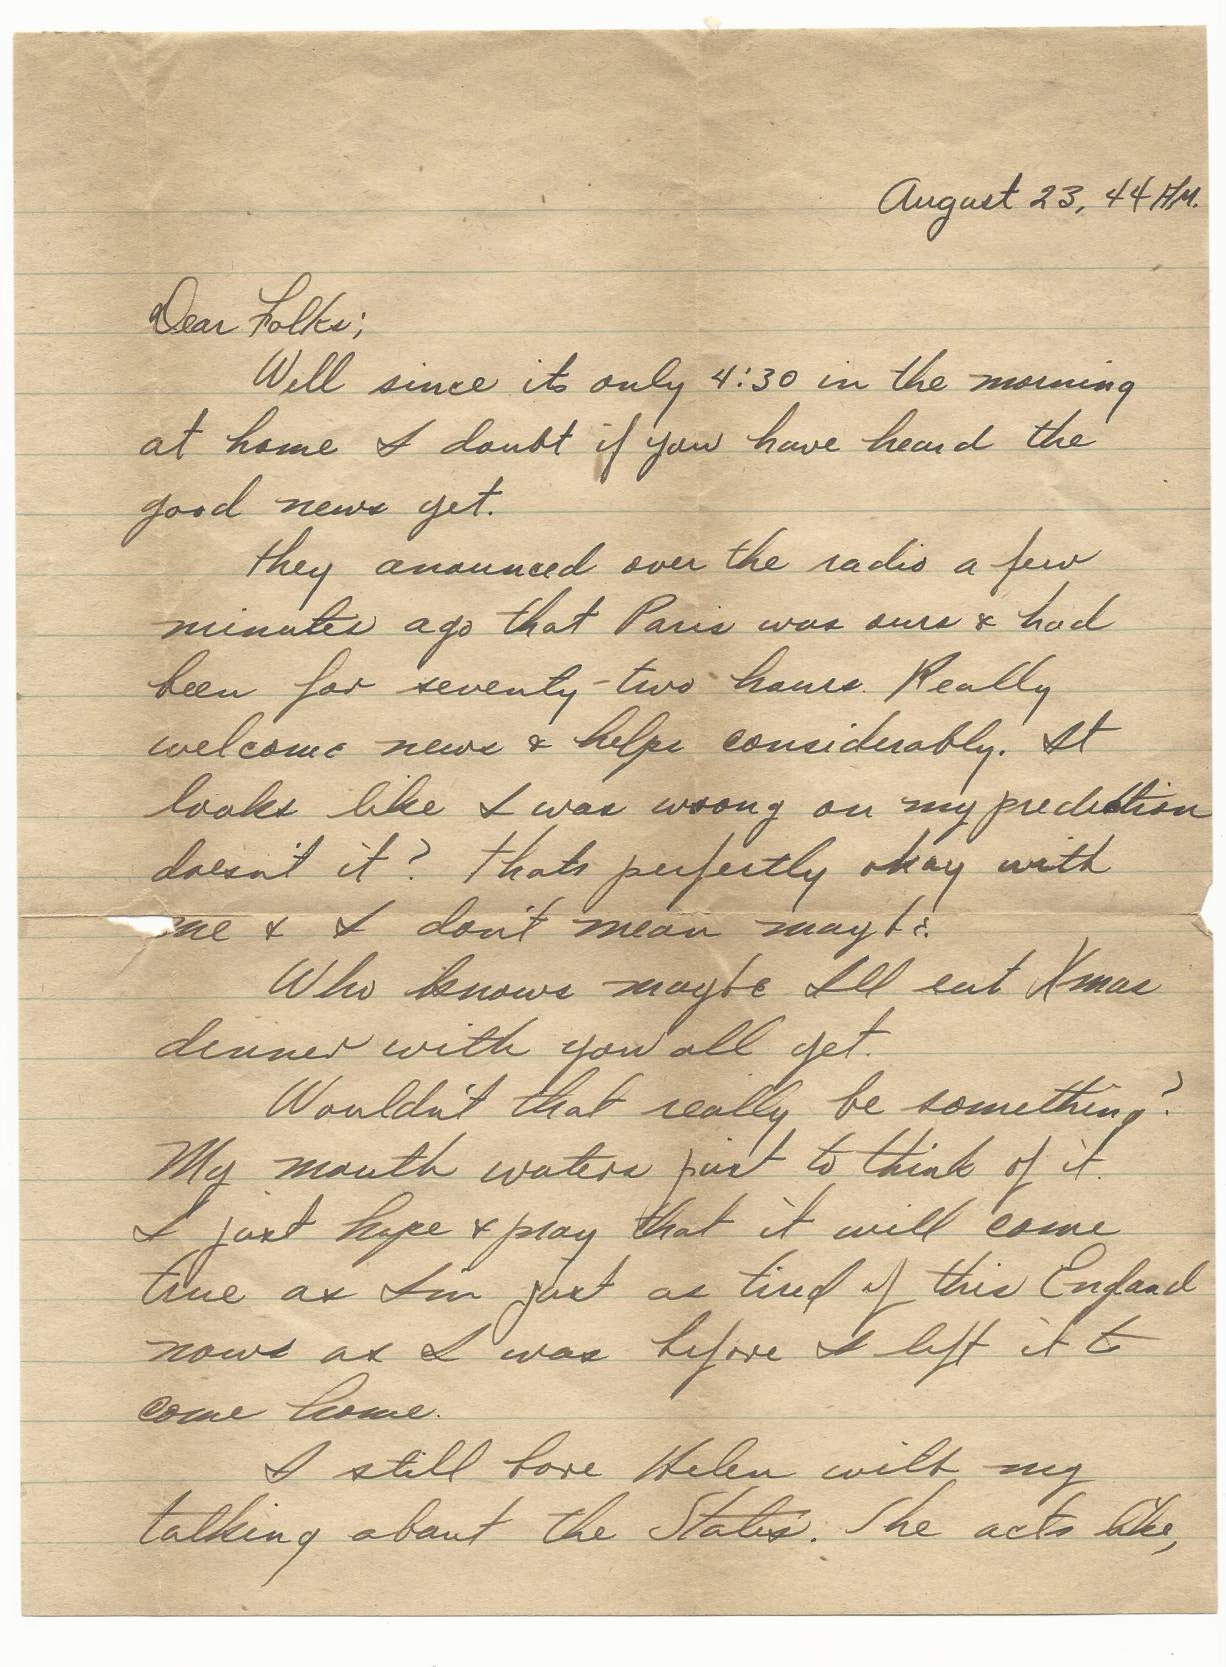 August 23, 44 AM.
Dear Folks;
Well since its only 4:30 in the morning
at home I doubt if you have heard the
good news yet.
They anounced over the radio a few
minutes ago that Paris was ours & had
been for seventy-two hours. Really
welcome news & helps considerably. It
looks like I was wrong on my prediction
doesn't it? Thats perfectly okay with
me & I don't mean maybe.
Who knows maybe I'll eat Xmas
dinner with you all yet.
Wouldn't that really be something?
My mouth waters just to think of it.
I just hope & pray that it will come
true as I'm just as tired of this England
nows as I was before I left it to
come home.
I still bore Helen with my
talking about the States. She acts like,